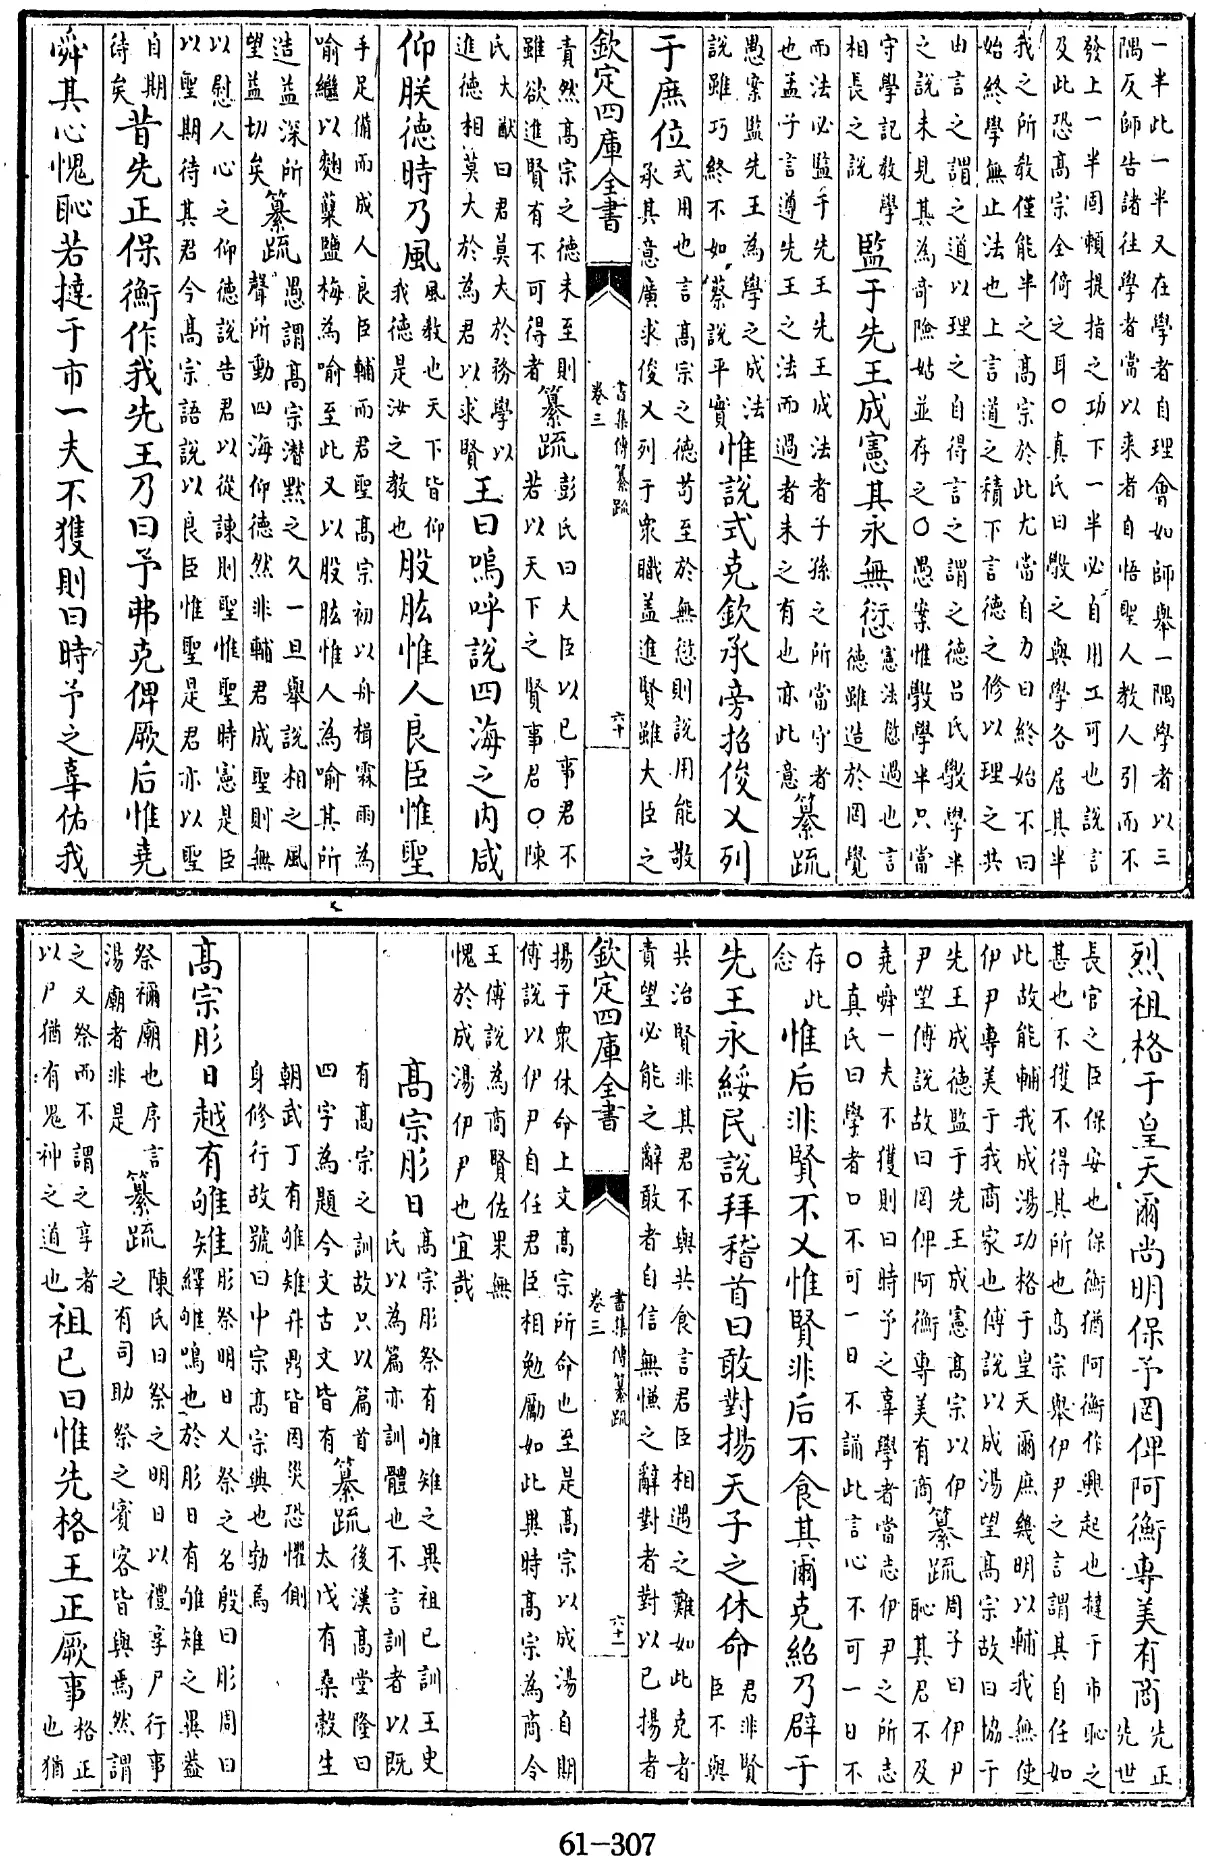 一半此一半又在學者自理會如師舉一隅學者以三
隅反師告諸往學者當以来者自悟聖人教人引而不
發上一半固頼提指之功下一半必自用工可也説言
及此恐髙宗全倚之耳○真氏曰斆之與學各居其半
我之所教僅能半之髙宗於此尤當自力曰終始不曰
始終學無止法也上言道之積下言德之修以理之共
由言之謂之道以理之自得言之謂之德吕氏斆學半
之説未見其為奇險姑並存之○愚案惟斆學半只當
守學記教學
相長之説
監于先王成憲其永無愆
憲法愆過也言
德雖造於罔覺
而法必監于先王先王成法者子孫之所當守者
也孟子言遵先王之法而過者未之有也亦此意
纂疏
愚案監先王為學之成法
説雖巧終不如蔡説平實
惟説式克欽承旁招俊乂列
于庶位
式用也言髙宗之德苟至於無愆則説用能敬
承其意廣求俊乂列于衆職盖進賢雖大臣之
欽定四庫全書
書集傳纂疏
卷三
六十
責然髙宗之德未至則
雖欲進賢有不可得者
纂疏
彭氏曰大臣以已事君不
若以天下之賢事君○陳
氏大猷曰君莫大於務學以
進德相莫大於為君以求賢
王曰嗚呼説四海之内咸
仰朕德時乃風
風教也天下皆仰
我德是汝之教也
股肱惟人良臣惟聖
手足備而成人良臣輔而君聖髙宗初以舟楫霖雨為
喻繼以麴糵鹽梅為喻至此又以股肱惟人為喻其所
造益深所
望益切矣
纂疏
愚謂髙宗潜黙之久一旦舉説相之風
聲所動四海仰德然非輔君成聖則無
以慰人心之仰德説告君以從諫則聖惟聖時憲是臣
以聖期待其君今髙宗語説以良臣惟聖是君亦以聖
自期
待矣
昔先正保衡作我先王乃曰予弗克俾厥后惟堯
舜其心愧恥若撻于市一夫不獲則曰時予之辜佑我
烈祖格于皇天爾尚明保予罔俾阿衡專美有商
先正
先世
長官之臣保安也保衡猶阿衡作興起也撻于市恥之
甚也不獲不得其所也髙宗舉伊尹之言謂其自任如
此故能輔我成湯功格于皇天爾庶幾明以輔我無使
伊尹專美于我商家也傅説以成湯望髙宗故曰協于
先王成德監于先王成憲髙宗以伊
尹望傅説故曰罔俾阿衡專美有商
纂疏
周子曰伊尹
恥其君不及
堯舜一夫不獲則曰時予之辜學者當志伊尹之所志
○真氏曰學者口不可一日不誦此言心不可一日不
存此
念
惟后非賢不乂惟賢非后不食其爾克紹乃辟于
先王永綏民説拜稽首曰敢對揚天子之休命
君非賢
臣不與
共治賢非其君不與共食言君臣相遇之難如此克者
責望必能之辭敢者自信無慊之辭對者對以已揚者
欽定四庫全書
書集傳纂疏
卷三
六十一
揚于衆休命上文髙宗所命也至是髙宗以成湯自期
傅説以伊尹自任君臣相勉勵如此異時髙宗為商令
王傅説為商賢佐果無
愧於成湯伊尹也宜哉
髙宗肜日
髙宗肜祭有雊雉之異祖已訓王史
氏以為篇亦訓體也不言訓者以既
有髙宗之訓故只以篇首
四字為題今文古文皆有
纂疏
後漢髙堂隆曰
太戊有桑榖生
朝武丁有雊雉升鼎皆因災恐懼側
身修行故號曰中宗髙宗興也勃焉
髙宗肜日越有雊雉
肜祭明日又祭之名殷曰肜周曰
繹雊鳴也於肜日有雊雉之異盖
祭禰廟也序言
湯廟者非是
纂疏
陳氏曰祭之明日以禮享尸行事
之有司助祭之賓客皆與焉然謂
之又祭而不謂之享者
以尸猶有鬼神之道也
祖已曰惟先格王正厥事
格正
也猶
61-307